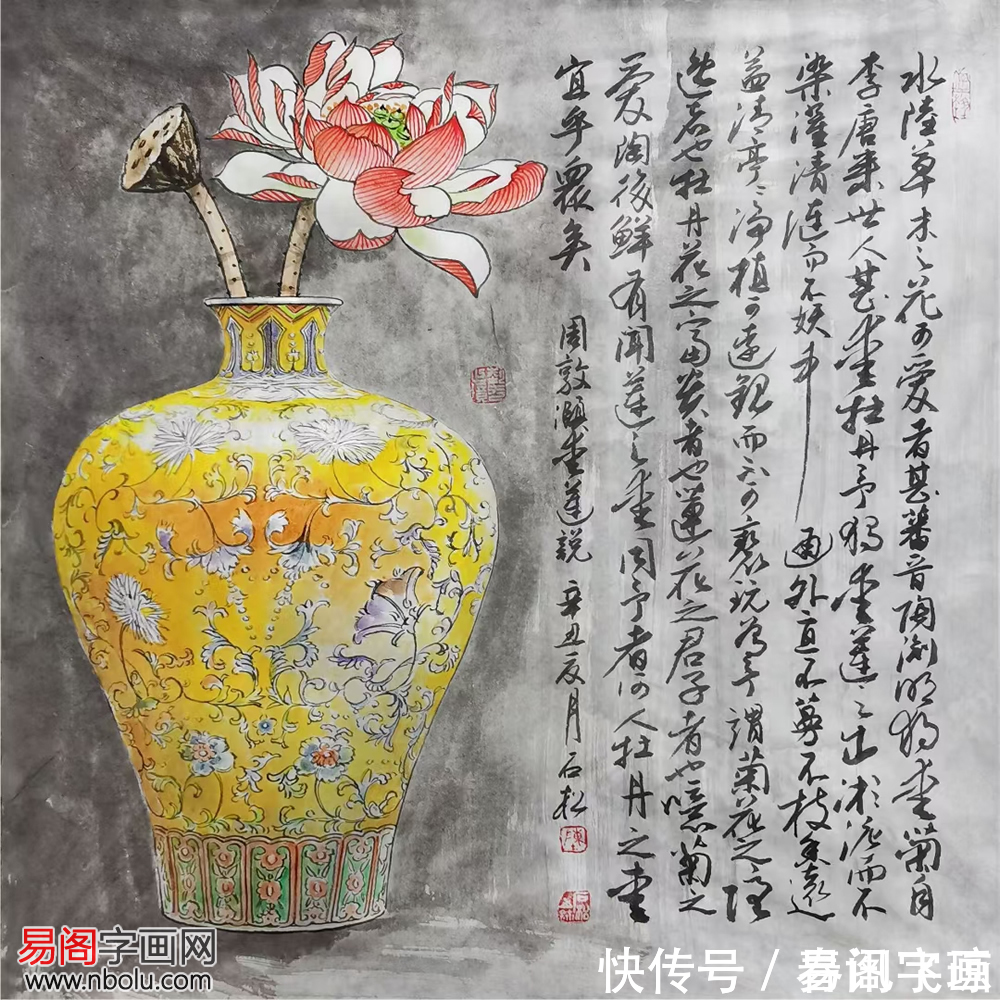 水陸草木之花可爱者甚蕃晋陶渊明独爱菊自
李唐来世人甚爱牡丹予独爱蓮之出淤泥而不
染濯清漣而不妖中通外直不蔓不枝香遠
益清亭亭净植可遠觀而不可亵玩焉予謂菊花之隐
逸者也牡丹花之富贵者也蓮花之君子者也噫菊之
爱陶後鮮有闻蓮之爱同予者何人牡丹之爱
宜乎眾矣
周敦颐爱蓮説 辛丑 月石松
易阁字画网
www.nbolu.com
快传号 /